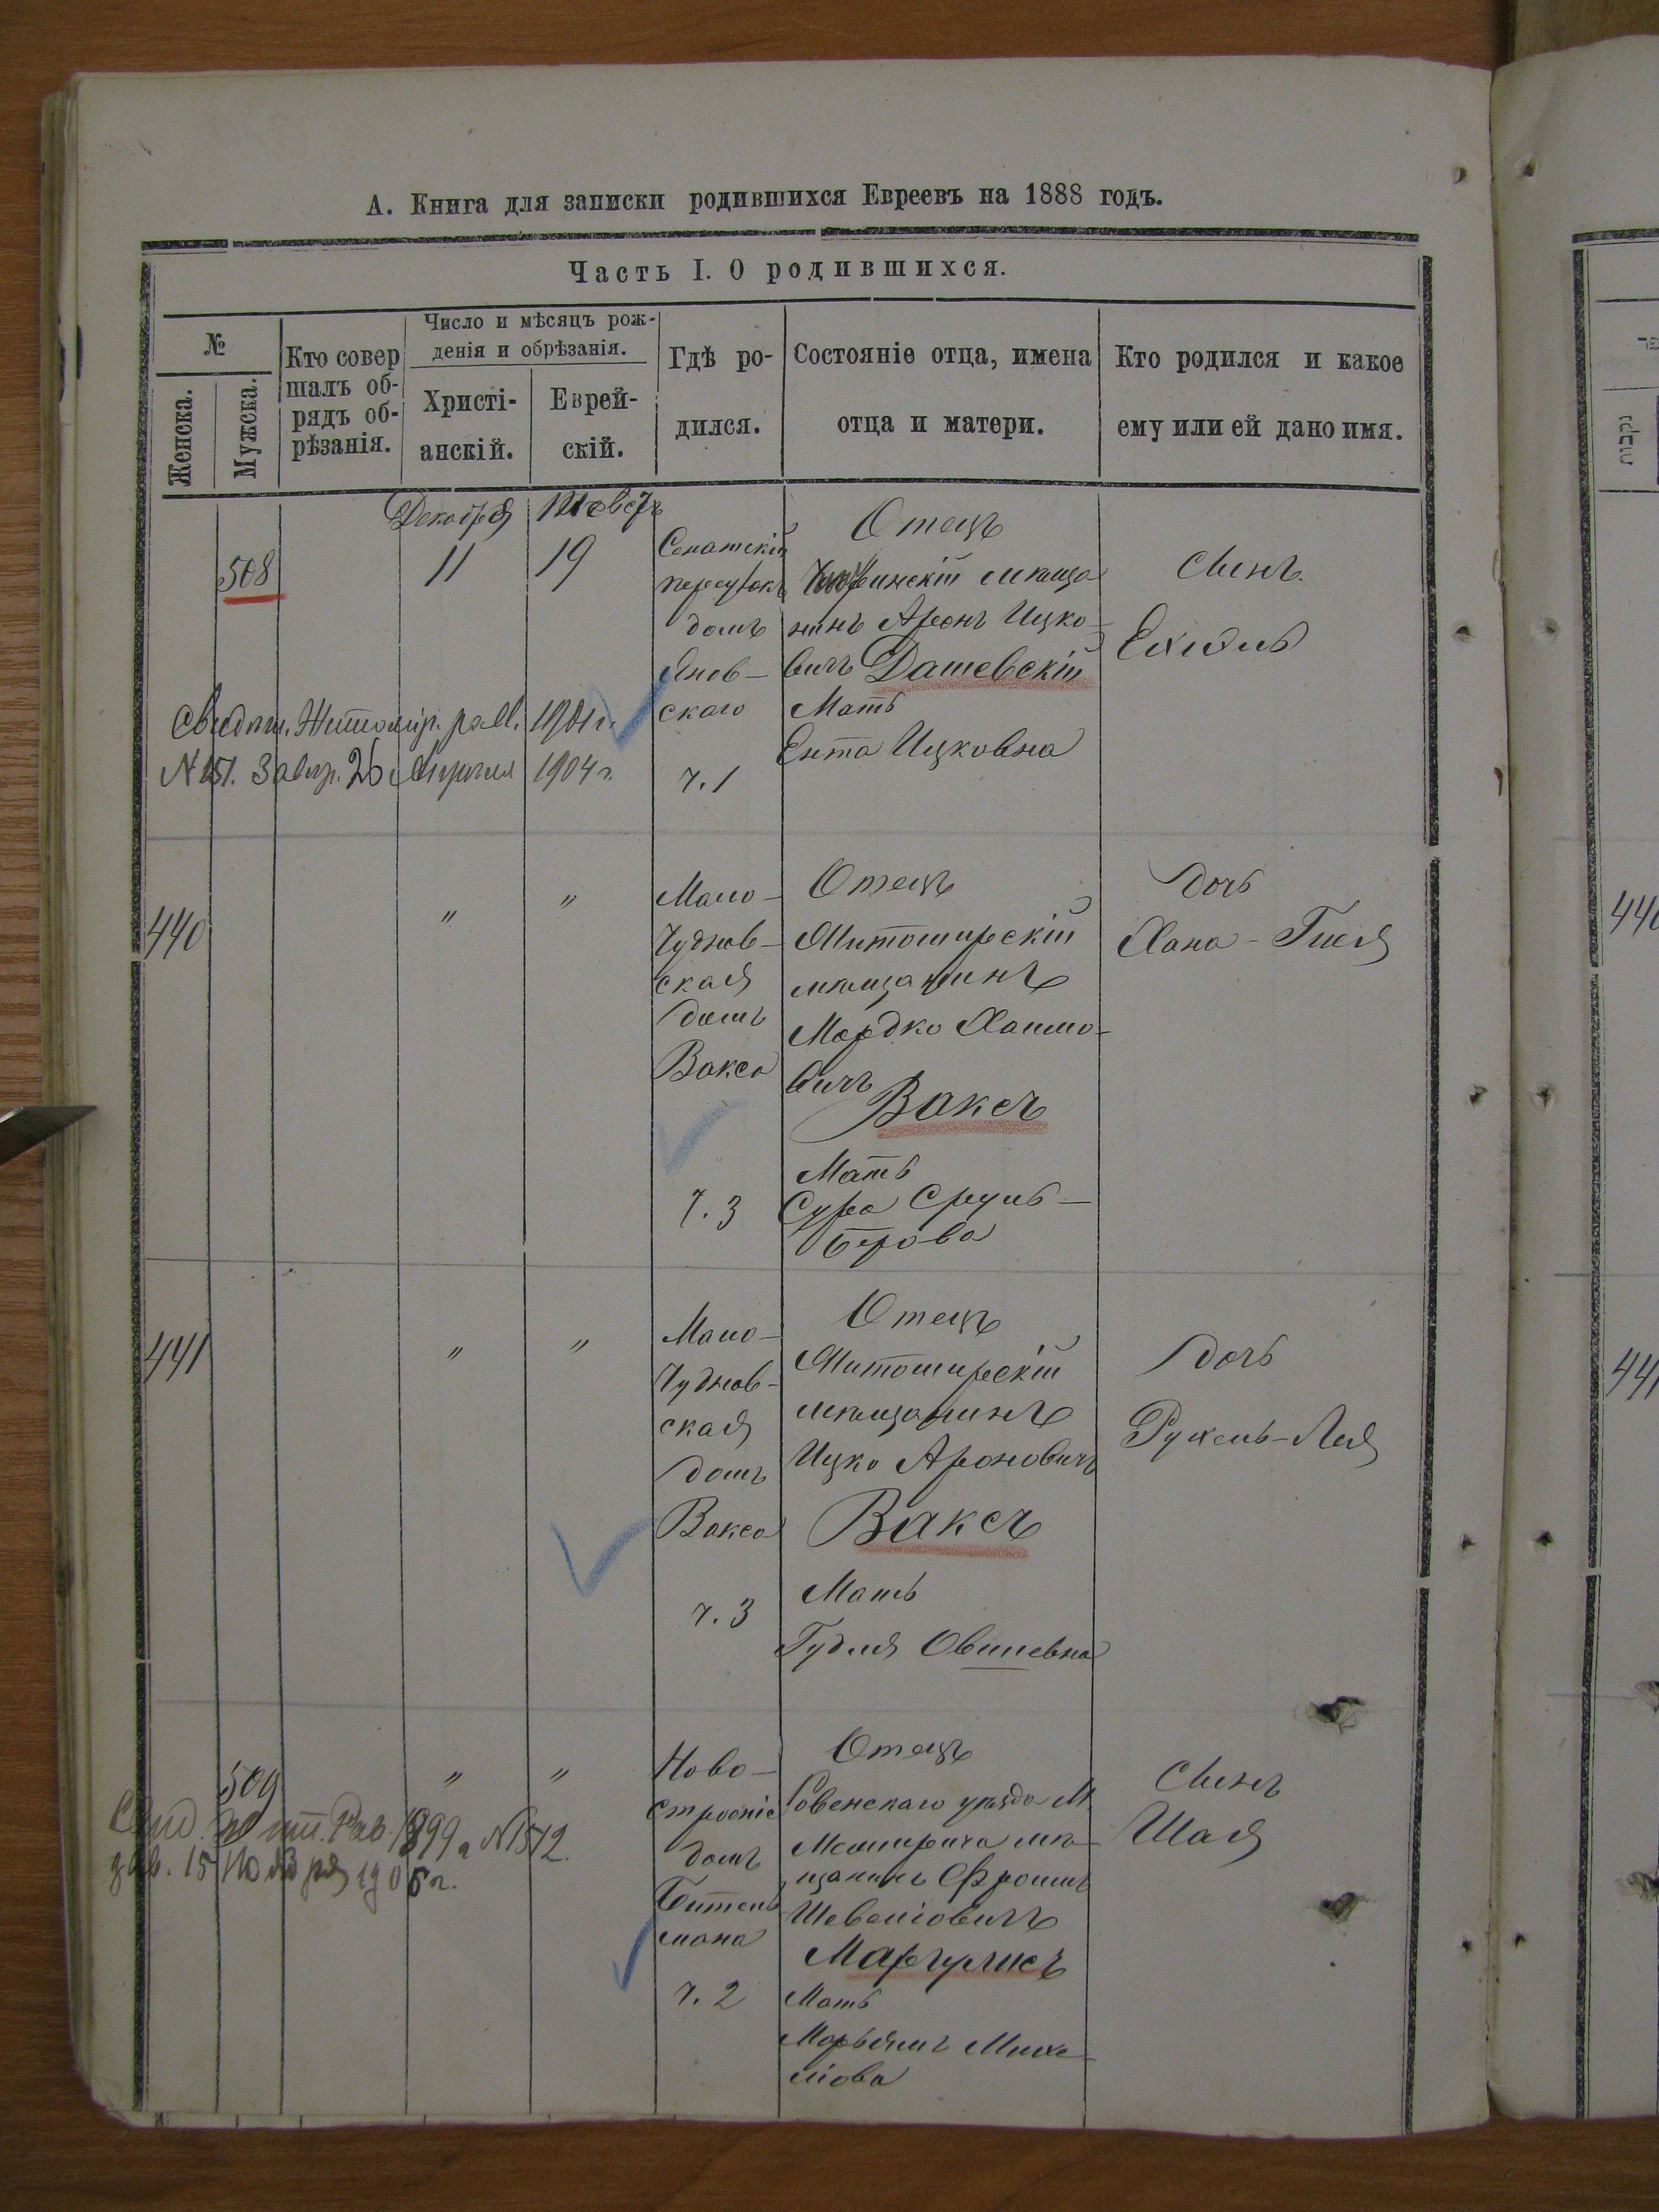 А. Книга для записки родившихся Евреевъ на 1888 годъ.
Часть I. О родившихся.
№
Женска.
Мужска.
Кто совер
шалъ об-
рядъ об-
рѣзанія.
Число и мѣсяцъ рож-
денія и обрѣзанія.
Христі-
анскій.
Еврей-
скій.
Гдѣ ро-
дился.
Состояніе отца, имена
отца и матери.
Кто родился и какое
ему или ей дано имя.
508
Декабря
11
Тевесъ
19
Сенатскій
переулокъ
домъ
Янов-
скаго
ч. 1
Отецъ
мѣща
нинъ Аронъ Ицко-
вичъ Дашевскій
Мать
Ента Ицковна
Сынъ
Ехиэль
Свидѣт. Житомір. рав. 1901 г.
Завѣр. 26 Апрѣля 1904 г.
440
"
"
Мало-
Чуднов-
ская
домъ
Вакса
ч. 3
Отецъ
Житомирскій
мѣщанинъ
Мордко Хаимо-
вичъ
Ваксъ
Мать
Сура Сруль-
Берова
Дочь
Хана-Гися
441
"
"
Мало-
Чуднов-
ская
домъ
Вакса
ч. 3
Отецъ
Житомирскій
мѣщанинъ
Ицко Ароновичъ
Ваксъ
Мать
Гудля Овшевна
Дочь
Рухель-Лея
509
"
"
Ново-
строеніе
домъ
Битель
мана
ч. 2
Отецъ
Ровенскаго уѣзда М
Межирича мѣ-
щанинъ Фроимъ
Шевеліовичъ
Маргулисъ
Мать
Марьямъ Михе-
ліова
Сынъ
Шая
Свид. Жит. Рав. 1899 г N 1512.
зав. 15 Ноября 1905 г.
440
441